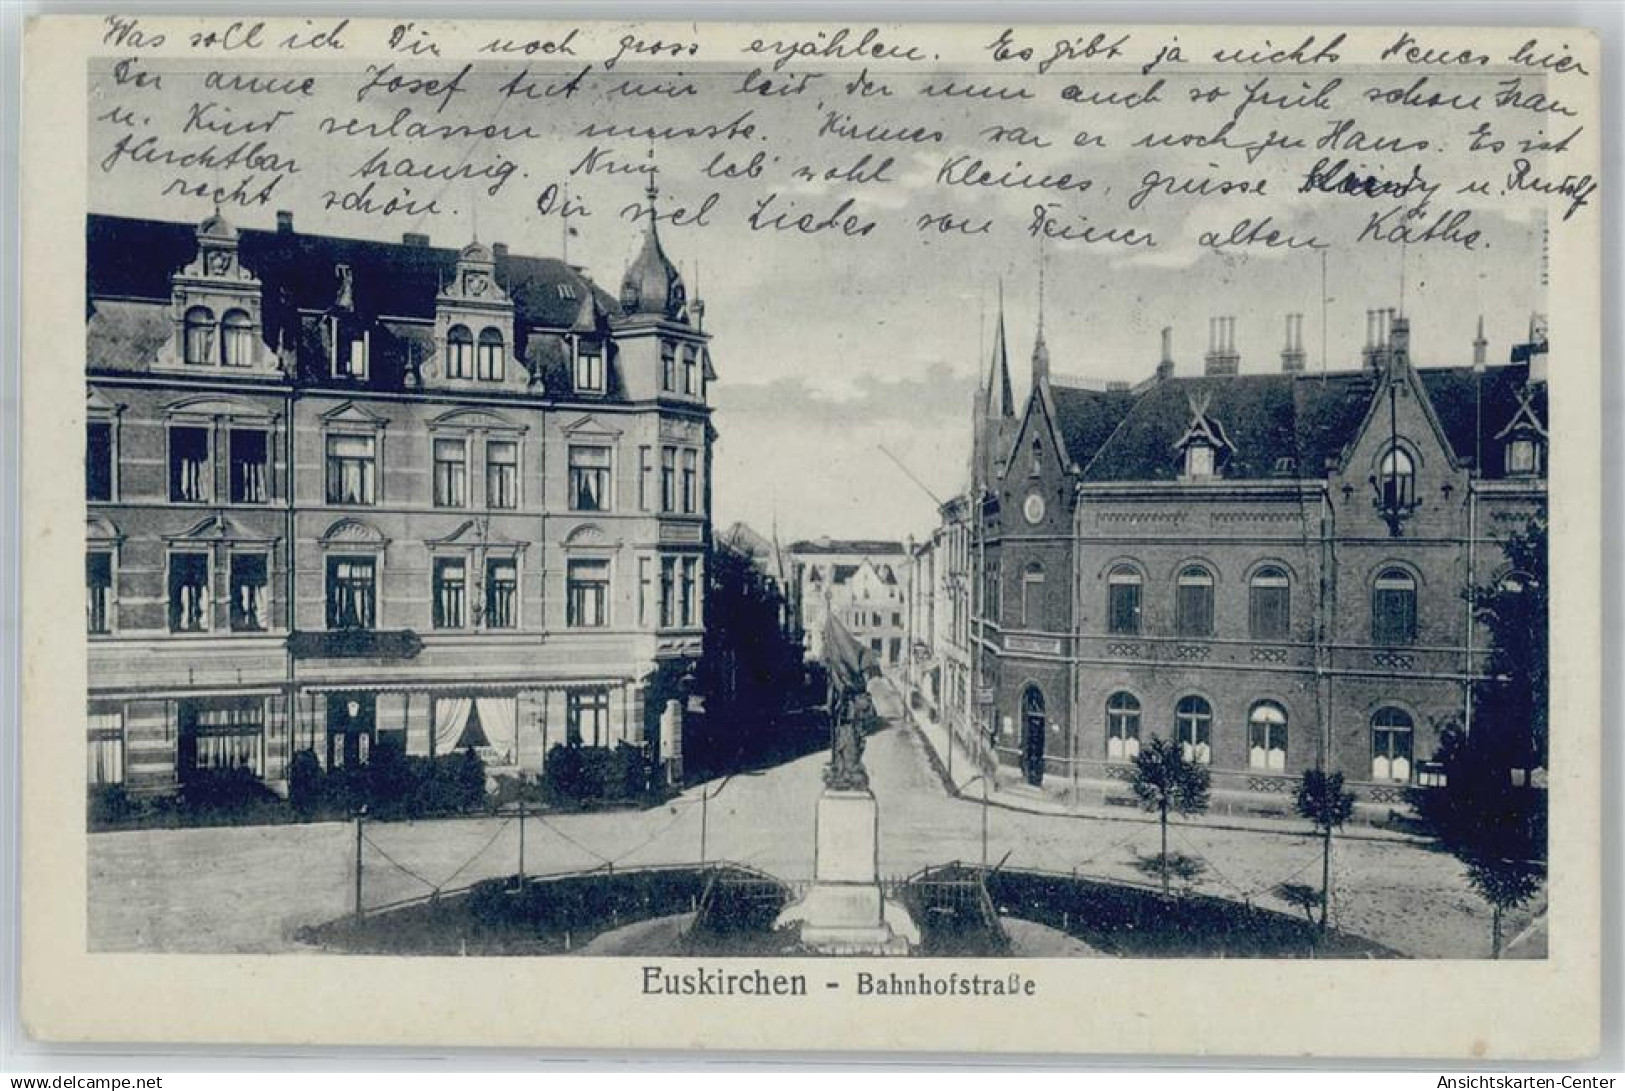 Was soll ich Dir noch gross erzählen. Es gibt ja nichts Neues hier
Der arme Josef tut mir leid, der nun auch so früh schon Frau
u. Kind verlassen musste. Kirmes war er noch zu Haus. Es ist
furchtbar traurig. Nun leb' wohl Kleines, grüsse u. Rudolf
recht schön. Dir viel Liebes von Deiner alten Käthe.
Euskirchen - Bahnhofstraße
www.delcampe.net
Ansichtskarten-Center